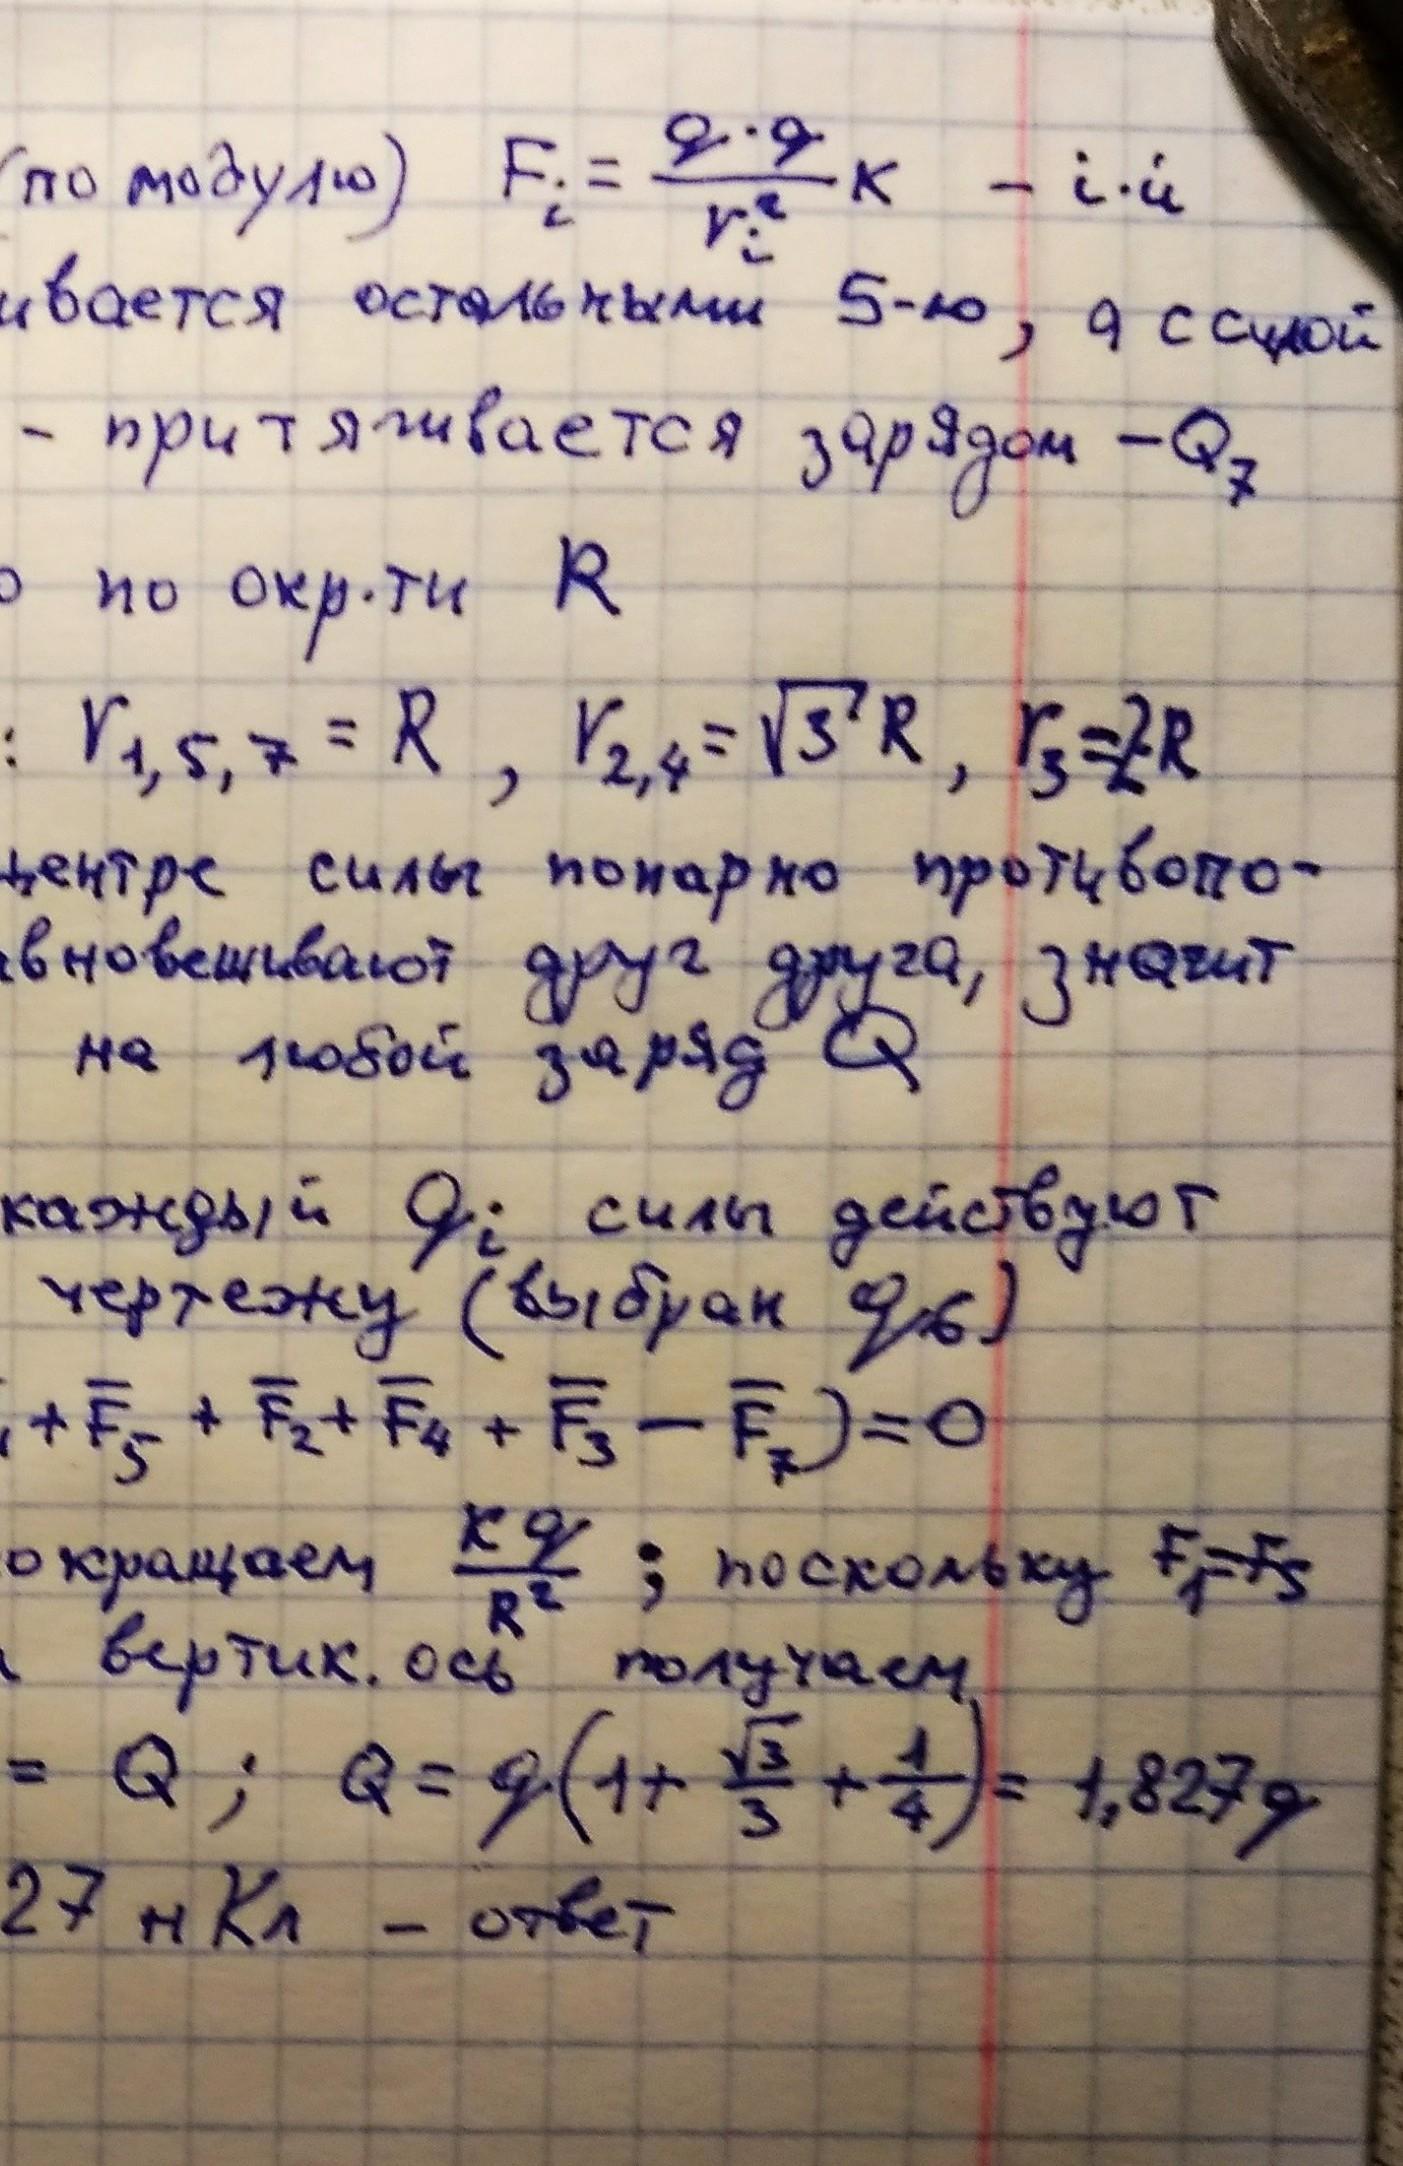 (по модулю) Fᵢ = q·q/rᵢ² K – i·й
ивается остальными 5-ю, а с силой
– притягивается зарядом –Q₇
о по окр.ти R
: r₁,₅,₇ = R, r₂,₄ = √3 R, r₃ = 2R
центре силы попарно противопо-
авновешивают друг друга, значит
на любой заряд Q
каждый qᵢ силы действуют
чертежу (выбран q₆)
+ F̅₅ + F̅₂ + F̅₄ + F̅₃ – F̅₇) = 0
окращаем Kq/R² ; поскольку F₁=F₅
вертик. ось получаем
= Q ; Q = q(1 + √3/3 + 1/4) = 1,827q
27 нКл – ответ